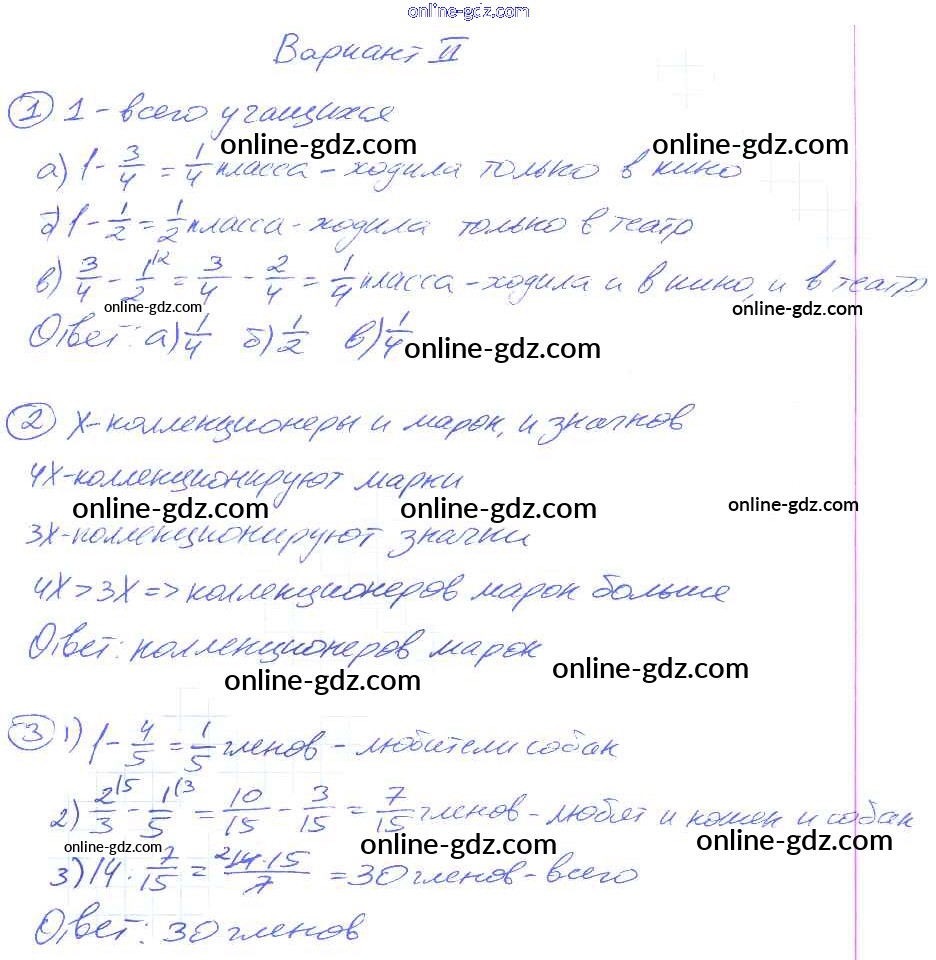 online-gdz.com
Вариант II
① 1 - всего учащихся
online-gdz.com online-gdz.com
а) 1 - 3/4 = 1/4 класса - ходила только в кино
б) 1 - 1/2 = 1/2 класса - ходила только в театр
в) 3/4 - 1/2 ^(2 = 3/4 - 2/4 = 1/4 класса - ходила и в кино, и в театр
online-gdz.com online-gdz.com
Ответ: а) 1/4 б) 1/2 в) 1/4
online-gdz.com
② x - коллекционеры и марок, и значков
4x - коллекционируют марки
online-gdz.com online-gdz.com online-gdz.com
3x - коллекционируют значки
4x > 3x => коллекционеров марок больше
Ответ: коллекционеров марок
online-gdz.com online-gdz.com
③ 1) 1 - 4/5 = 1/5 членов - любители собак
2) 2/3 ^(5 - 1/5 ^(3 = 10/15 - 3/15 = 7/15 членов - любят и кошек и собак
online-gdz.com online-gdz.com online-gdz.com
3) 14 : 7/15 = ²14·15/7 = 30 членов - всего
Ответ: 30 членов